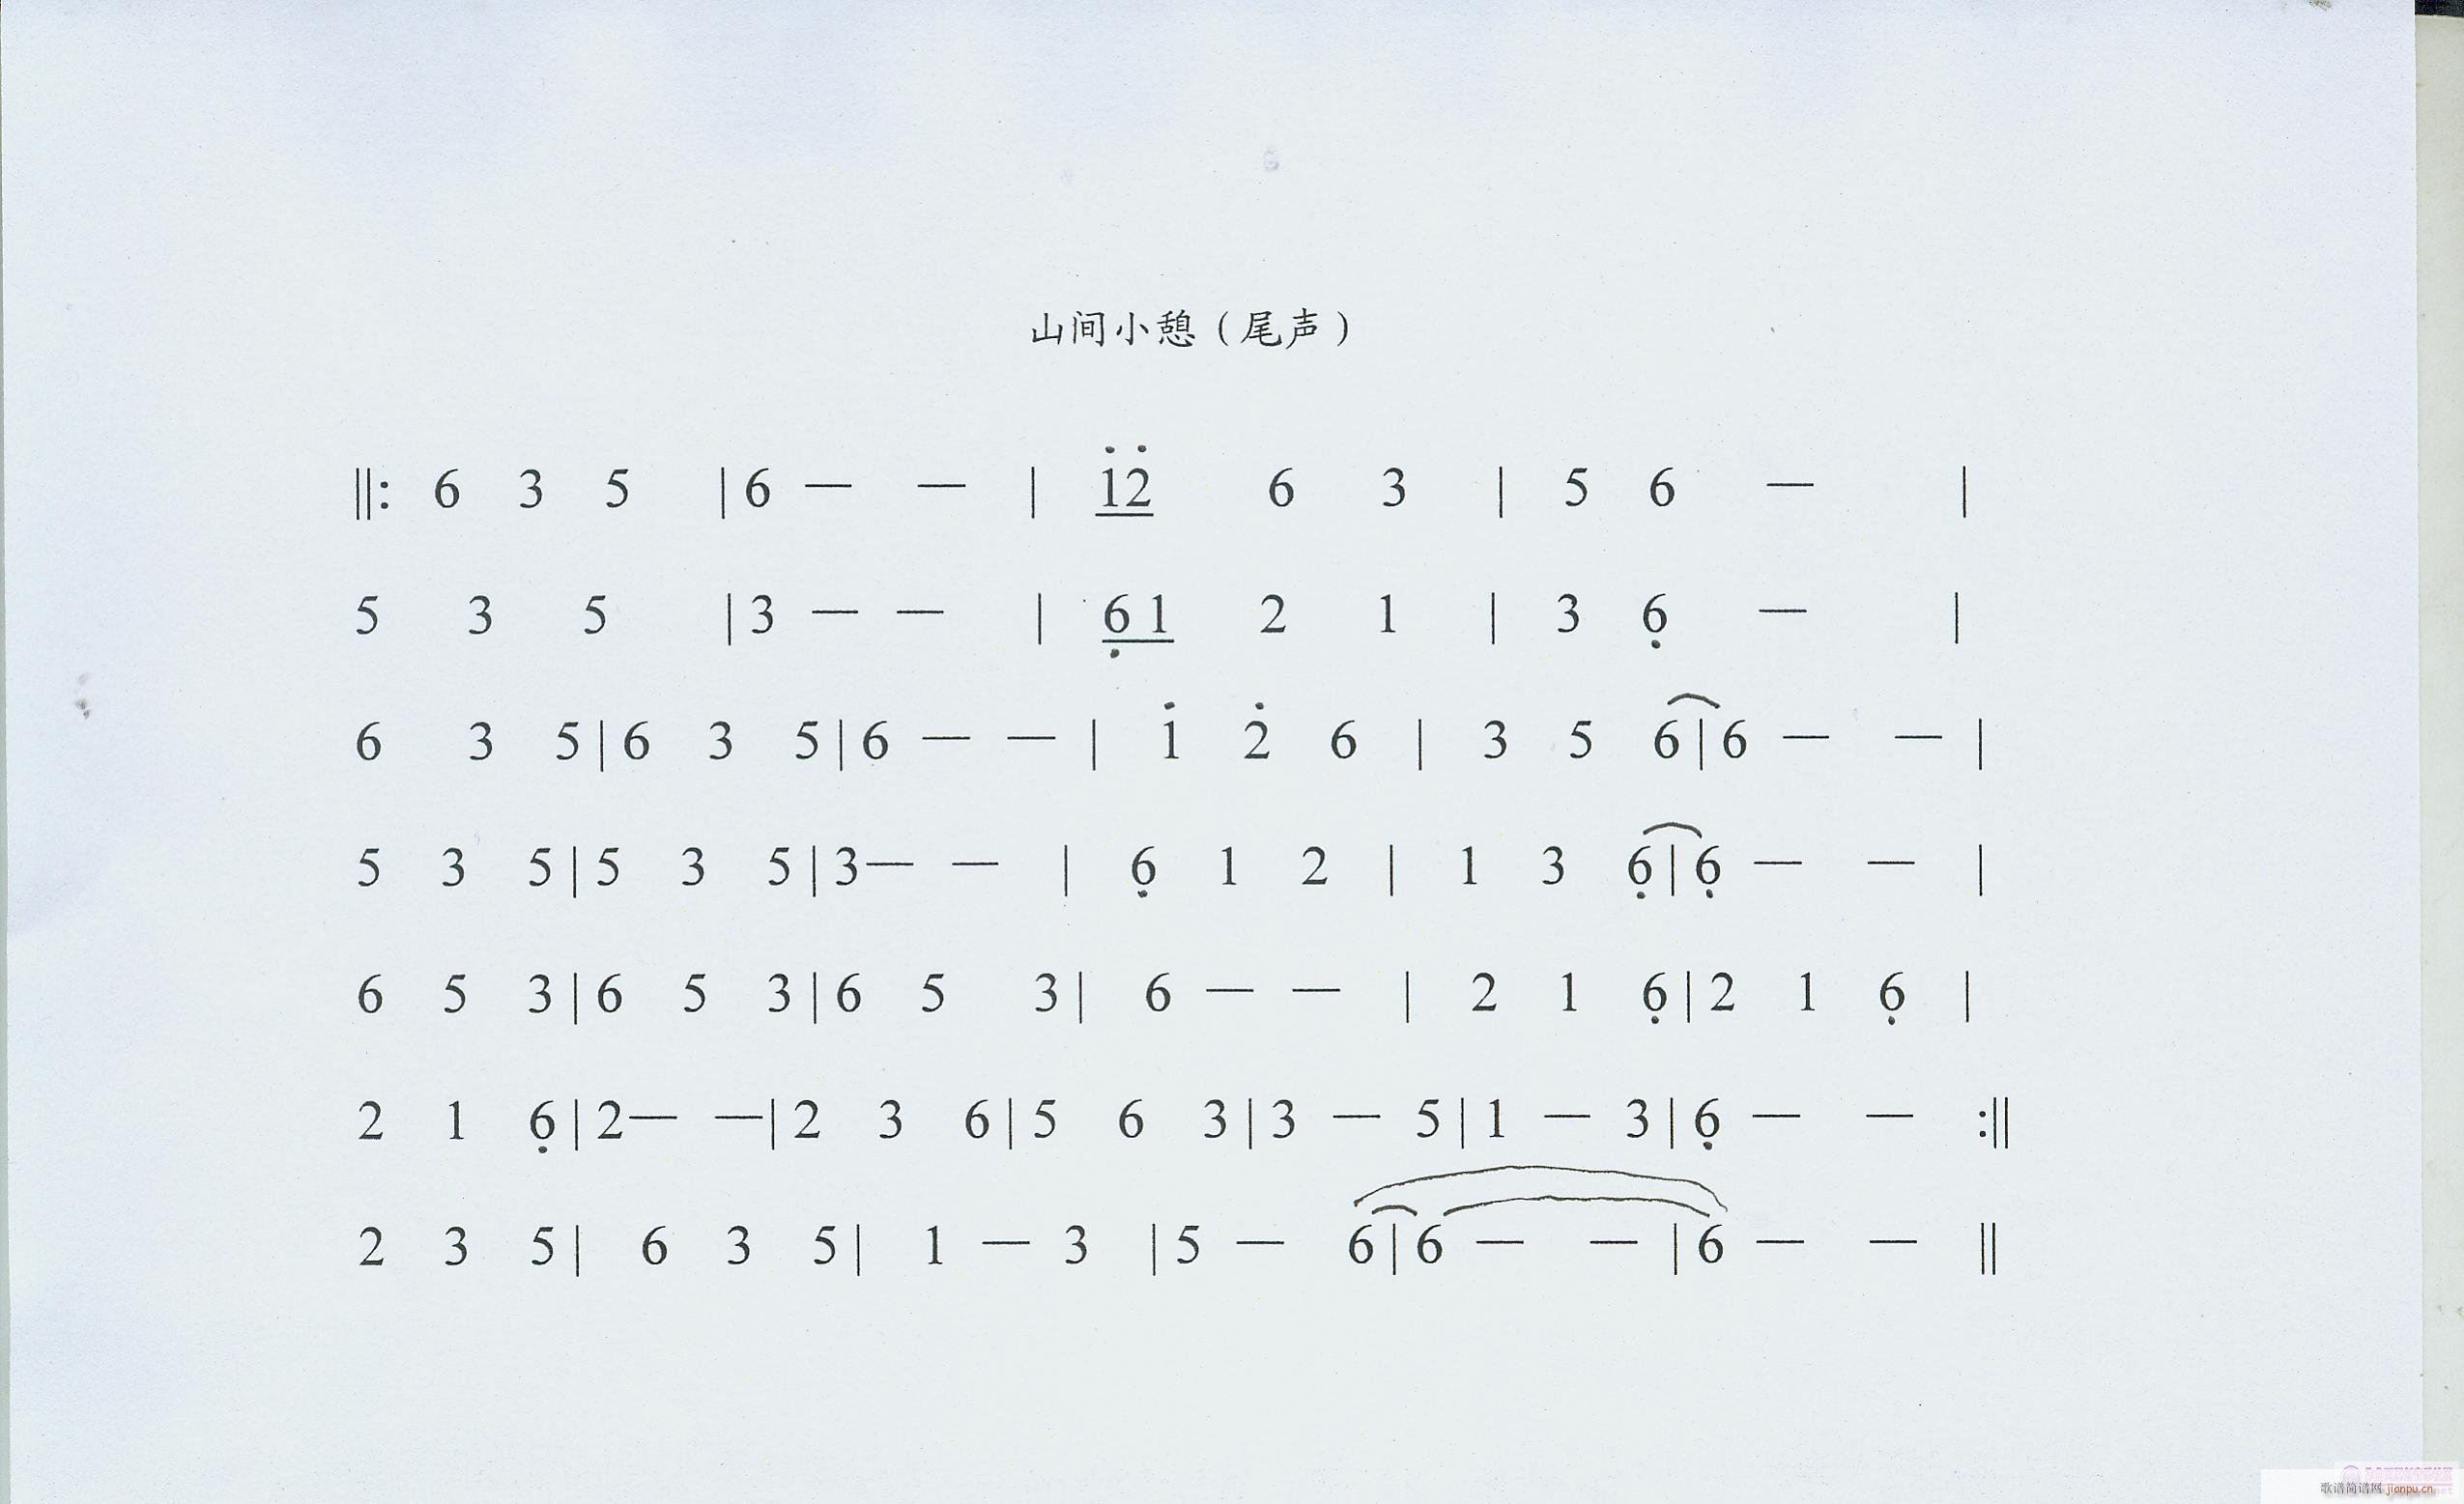 山间小憩（尾声）
‖: 6 3 5 | 6 — — | 1̇2̇ 6 3 | 5 6 — |
5 3 5 | 3 — — | 6̣ 1 2 1 | 3 6̣ — |
6 3 5 | 6 3 5 | 6 — — | 1̇ 2̇ 6 | 3 5 6 | 6 — — |
5 3 5 | 5 3 5 | 3 — — | 6̣ 1 2 | 1 3 6̣ | 6̣ — — |
6 5 3 | 6 5 3 | 6 5 3 | 6 — — | 2 1 6̣ | 2 1 6̣ |
2 1 6̣ | 2 — — | 2 3 6 | 5 6 3 | 3 — 5 | 1 — 3 | 6̣ — — :‖
2 3 5 | 6 3 5 | 1 — 3 | 5 — 6 | 6 — — | 6 — — ‖
歌谱简谱网 jianpu.cn